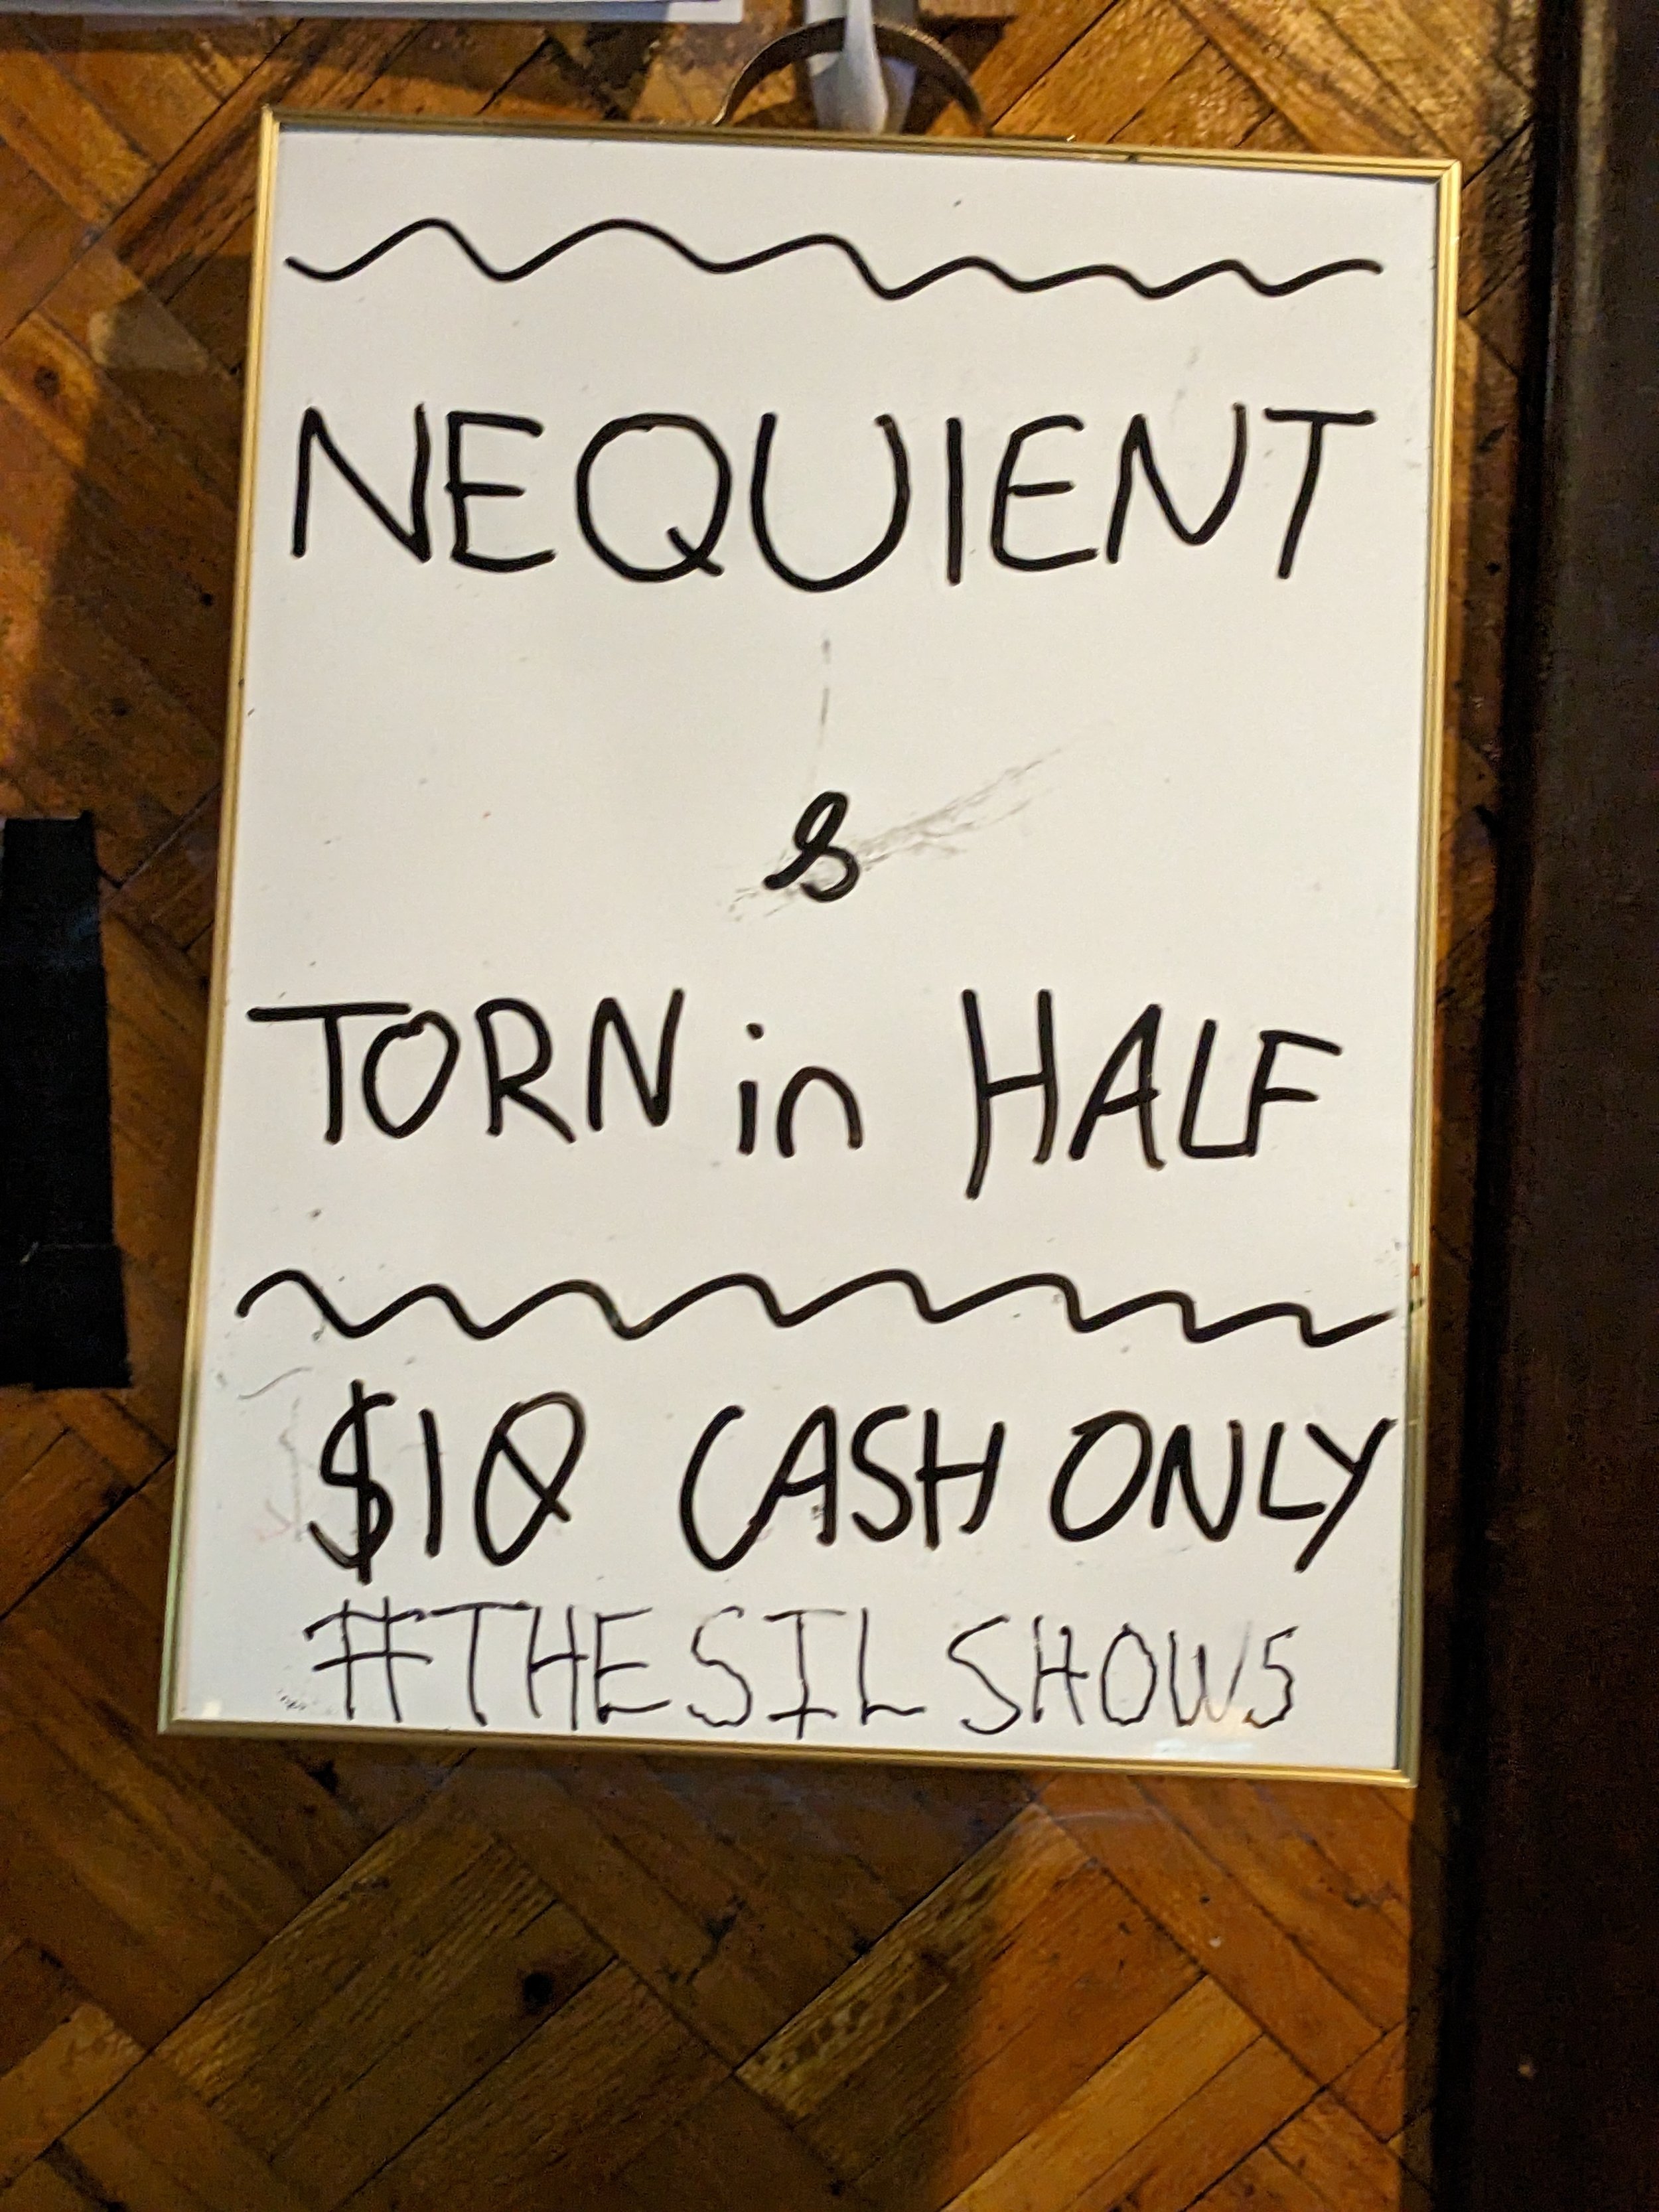 NEQUIENT
&
TORN in HALF
$10 CASH ONLY
#THESILSHOWS